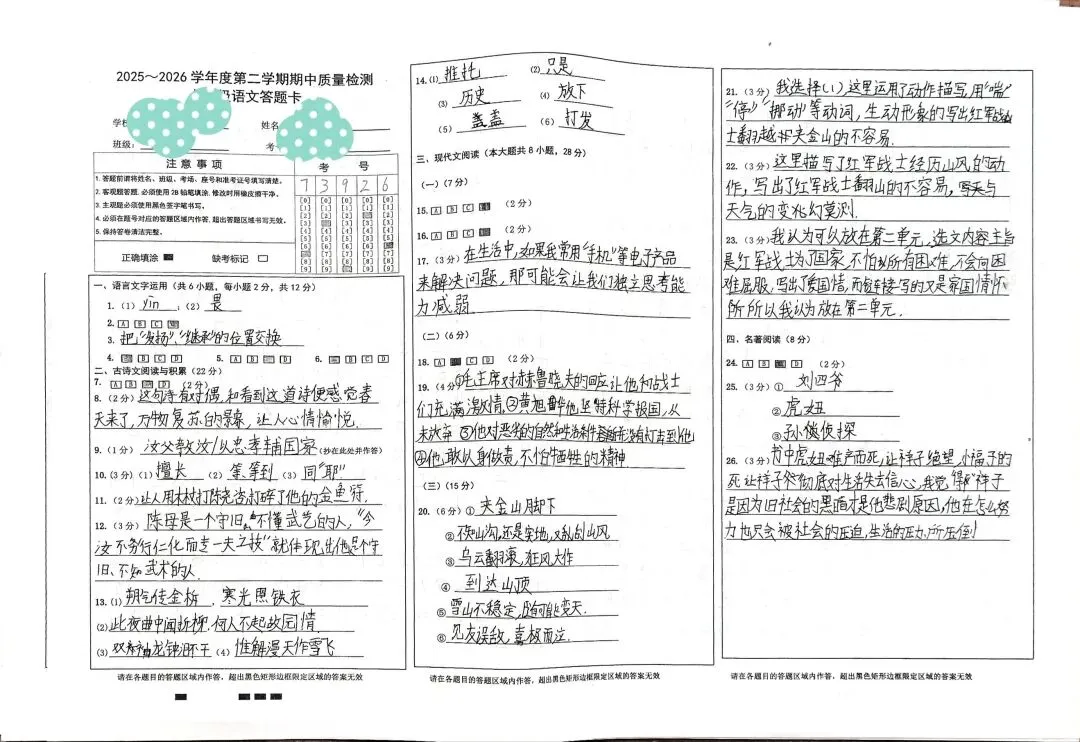 2025～2026学年度第二学期期中质量检测
语文答题卡
学校
姓名
班级:
考
注意事项
1.答题前请将姓名、班级、考场、座号和准考证号填写清楚。
2.客观题答题,必须使用2B铅笔填涂,修改时用橡皮擦干净。
3.主观题必须使用黑色签字笔书写。
4.必须在题号对应的答题区域内作答,超出答题区域书写无效。
5.保持答卷清洁完整。
正确填涂
缺考标记
考号
7 3 9 2 6
一、语言文字运用（共6小题，每小题2分，共12分）
1.（1）yīn；（2）畏
2. A B C
3. 把"发扬"、"继承"的位置交换
4. B C D 5. A B D 6. B C D
二、古诗文阅读与积累（22分）
7. A D （2分）
8.（2分）这句诗看对偶,和看到这道诗便感觉春
天来了,万物复苏的景象,让人心情愉悦.
9.（1分）汝父教汝以忠孝辅国家（抄在此处并作答）
10.（3分）（1）擅长（2）等,等到（3）同"耶"
11.（2分）让人用木杖打陈尧咨,打碎了他的金鱼符.
12.（3分）陈母是一个守旧、不懂武艺的人,"今
汝不务行仁化而专一夫之技"就体现出他是个守
旧、不知武术的人.
13.（1）朔气传金柝,寒光照铁衣
（2）此夜曲中闻折柳,何人不起故园情.
（3）双袖龙钟泪不干（4）惟解漫天作雪飞
请在各题目的答题区域内作答，超出黑色矩形边框限定区域的答案无效
14.（1）推托（2）只是
（3）历史（4）放下
（5）盏盏（6）打发
三、现代文阅读（本大题共8小题，28分）
（一）（7分）
15. A B C （2分）
16. A B C （2分）
17.（3分）在生活中,如果我常用"手机"等电子产品
来解决问题,那可能会让我们独立思考能
力减弱.
（二）（6分）
18. A C D （2分）
19.（4分）①毛主席对赫鲁晓夫的回应让他和战士
们充满激情,②黄旭华他坚持科学报国,从
未放弃 ③他对恶劣的自然和生活条件没有打击到他
④他敢以身做责,不怕牺牲的精神
（三）（15分）
20.（6分）①夹金山脚下
②不知山沟,还是实地,又乱刮山风
③乌云翻滚,狂风大作
④到达山顶
⑤雪山不稳定,随时可能变天.
⑥见友误敌,喜极而泣.
请在各题目的答题区域内作答，超出黑色矩形边框限定区域的答案无效
21.（3分）我选择（1）这里运用了动作描写,用"喘"
"停"挪动"等动词,生动形象的写出红军战
士翻越夹金山的不容易.
22.（3分）这里描写了红军战士经历山风的动
作,写出了红军战士翻山的不容易,写与
天气的变化幻莫测.
23.（3分）我认为可以放在第二单元,选文内容主旨
是红军战士为了国家,不怕所有困难,不会向困
难屈服,写出了爱国情,而链接写的又是家国情怀
所所以我认为放在第二单元.
四、名著阅读（8分）
24. A B D （2分）
25.（3分）①刘四爷
②虎妞
③孙侦探
26.（3分）书中虎妞难产而死,让祥子绝望,小福子的
死让祥子彻底对生活失去信心,我觉得祥子
是因为旧社会的黑暗才是他悲剧原因,他在怎么努
力也只会被社会的压迫,生活的压力,所压倒
请在各题目的答题区域内作答，超出黑色矩形边框限定区域的答案无效